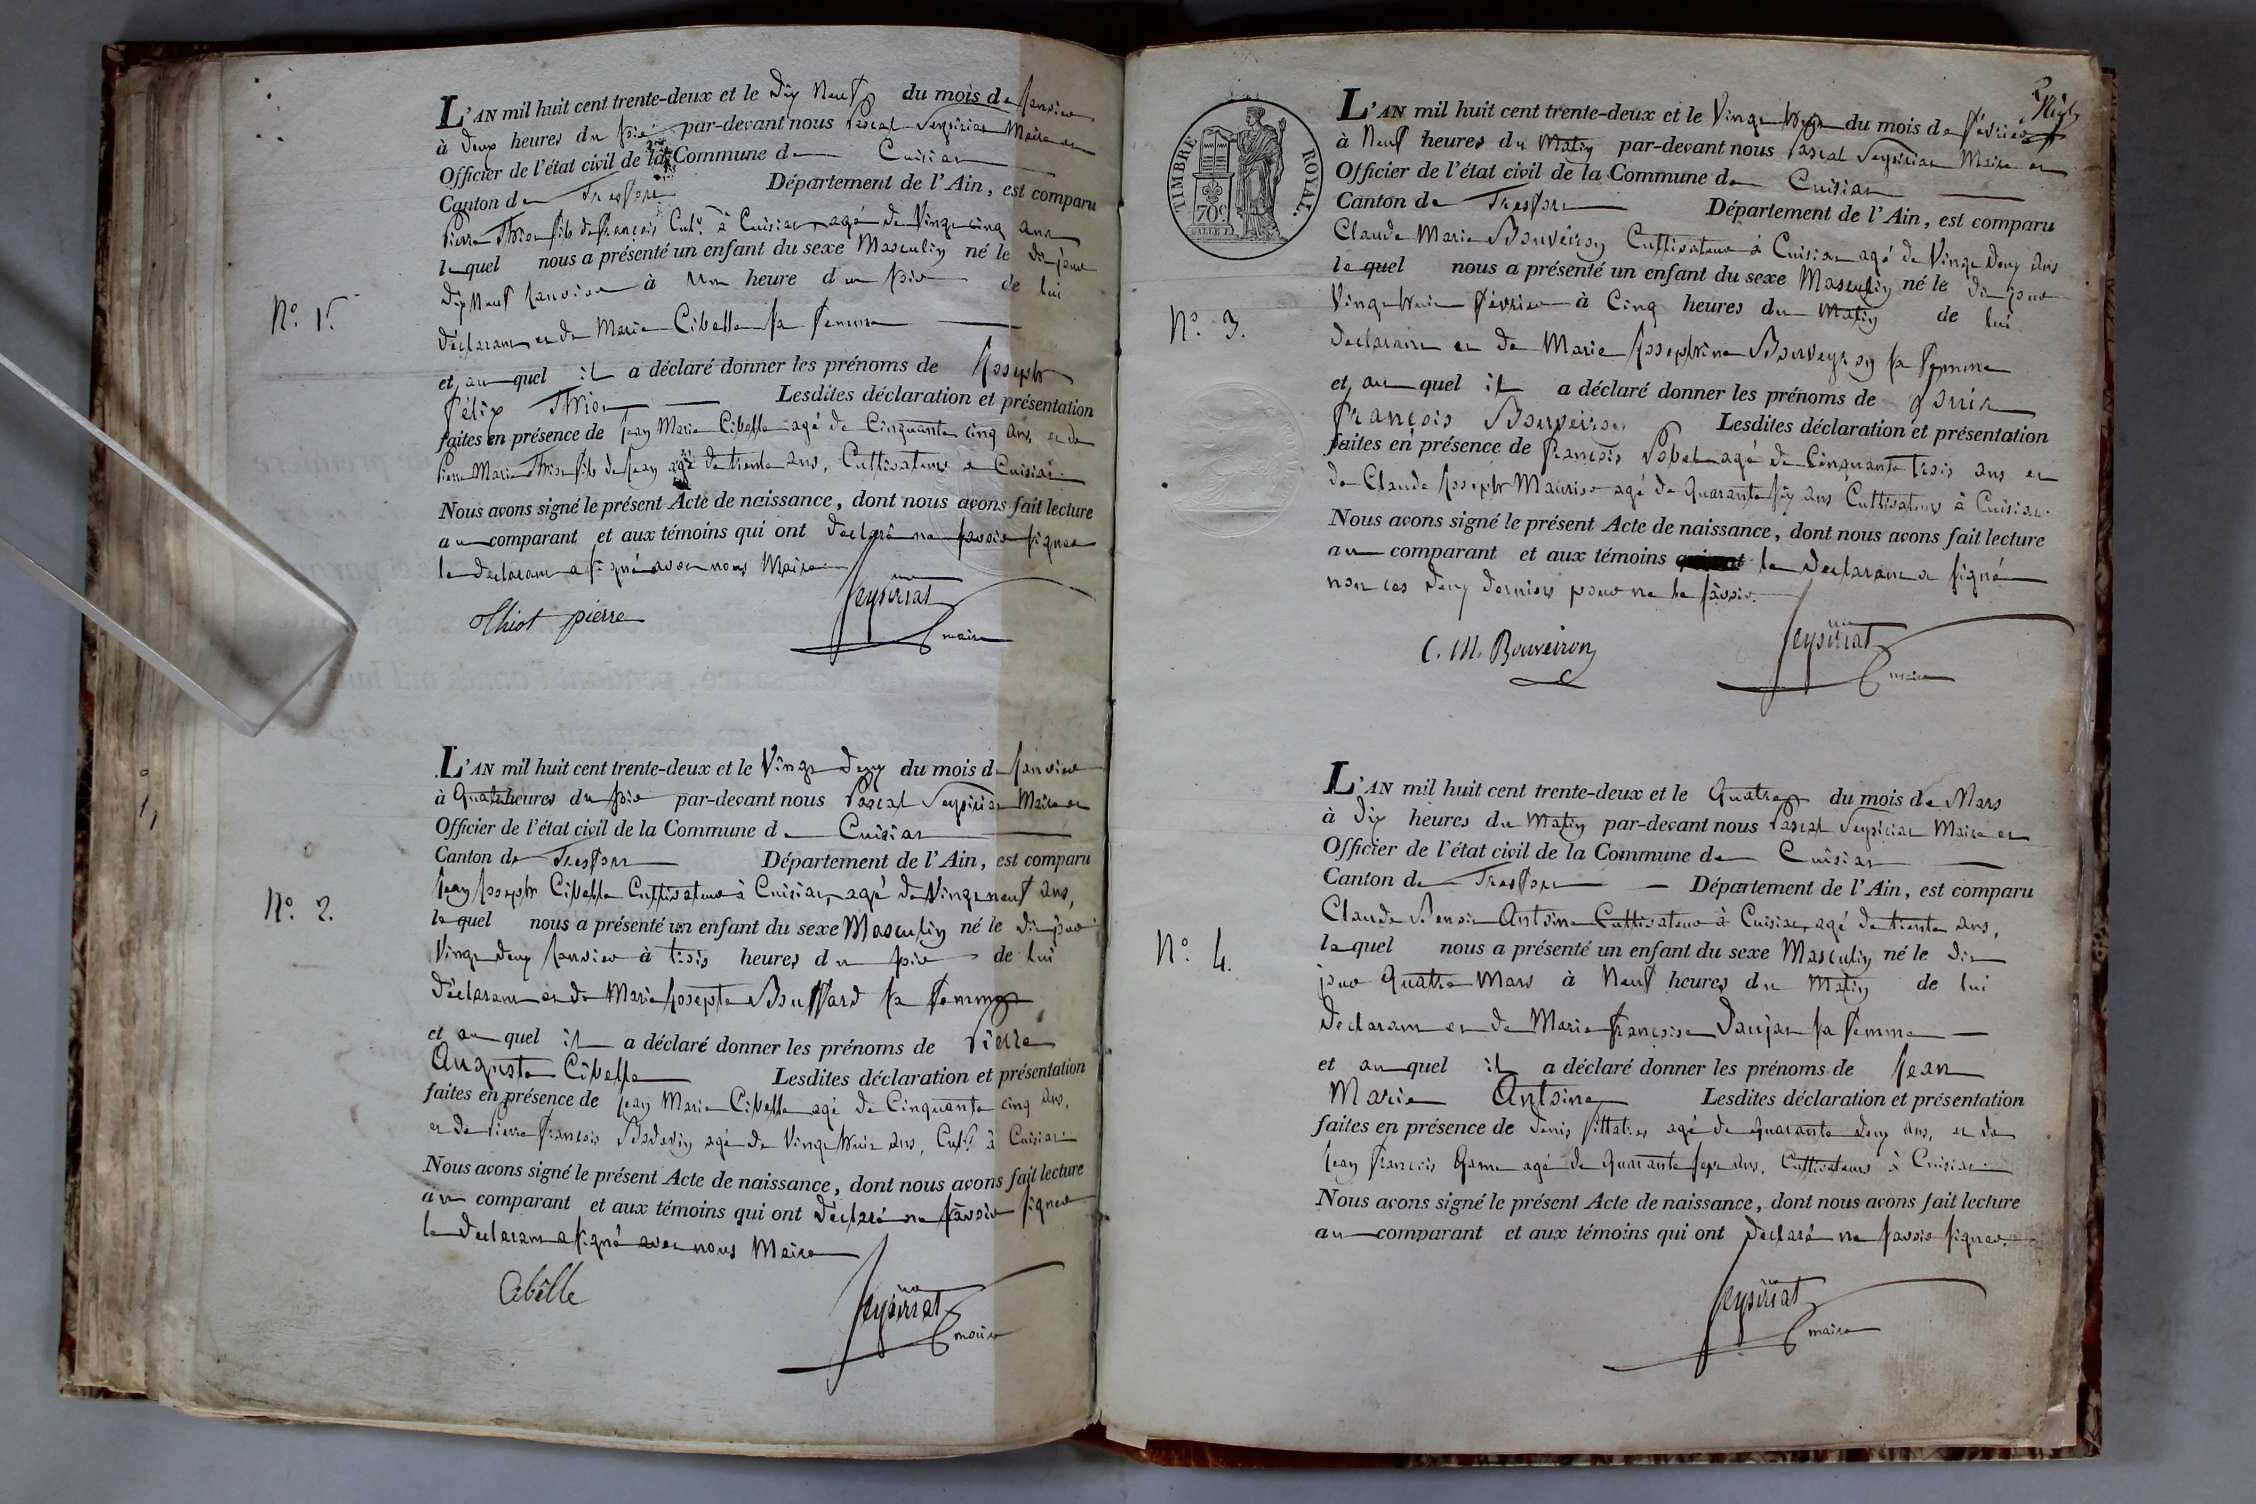 N.º 1.er
L'AN mil huit cent trente-deux et le Dix Neuf du mois de Janvier
à Deux heures du soir par-devant nous Pascal Seysiriat Maire et
Officier de l'état civil de la Commune de Cuisiat
Canton de Treffort Département de l'Ain, est comparu
Pierre Thiot fils de François, Cult.r à Cuisiat, agé de Vingt cinq ans
lequel nous a présenté un enfant du sexe Masculin né le dit jour
dix Neuf Janvier à Une heure du soir de lui
déclarant et de Marie Cibelle sa femme
et auquel il a déclaré donner les prénoms de Joseph
félix Thiot Lesdites déclaration et présentation
faites en présence de Jean Marie Cibelle agé de Cinquante cinq ans, et de
Pierre Marie Thiot fils de Jean agé de trente ans, Cultivateurs à Cuisiat
Nous avons signé le présent Acte de naissance, dont nous avons fait lecture
au comparant et aux témoins qui ont déclaré ne savoir signer
le déclarant a signé avec nous Maire
Thiot pierre Seysiriat
maire
N.º 2.
L'AN mil huit cent trente-deux et le Vingt Deux du mois de Janvier
à Quatre heures du soir par-devant nous Pascal Seysiriat Maire et
Officier de l'état civil de la Commune de Cuisiat
Canton de Treffort Département de l'Ain, est comparu
Jean Joseph Cibelle Cultivateur à Cuisiat, agé de Vingt neuf ans,
lequel nous a présenté un enfant du sexe Masculin né le dit jour
Vingt deux Janvier à trois heures du soir de lui
déclarant et de Marie Josephte Bouffard sa femme
et auquel il a déclaré donner les prénoms de Pierre
Auguste Cibelle Lesdites déclaration et présentation
faites en présence de Jean Marie Cibelle agé de Cinquante cinq ans,
et de Pierre François Bodovin agé de Vingt huit ans, Cult.rs à Cuisiat
Nous avons signé le présent Acte de naissance, dont nous avons fait lecture
au comparant et aux témoins qui ont déclaré ne savoir signer
le déclarant a signé avec nous Maire
Cibelle Seysiriat
maire
2
TIMBRE ROYAL.
70c
N.º 3.
L'AN mil huit cent trente-deux et le Vingt huit du mois de février
à Neuf heures du Matin par-devant nous Pascal Seysiriat Maire et
Officier de l'état civil de la Commune de Cuisiat
Canton de Treffort Département de l'Ain, est comparu
Claude Marie Bouveiron Cultivateur à Cuisiat agé de Vingt deux ans
lequel nous a présenté un enfant du sexe Masculin né le dit jour
Vingt huit février à Cinq heures du Matin de lui
Déclarant et de Marie Josephine Bouveyron sa femme
et auquel il a déclaré donner les prénoms de Louis
François Bouveiron Lesdites déclaration et présentation
faites en présence de François Pobel agé de Cinquante trois ans et
de Claude Joseph Maurice agé de Quarante six ans Cultivateurs à Cuisiat
Nous avons signé le présent Acte de naissance, dont nous avons fait lecture
au comparant et aux témoins le Déclarant a signé
non les deux derniers pour ne le savoir.
C. M. Bouveiron Seysiriat
maire
N.º 4.
L'AN mil huit cent trente-deux et le Quatre du mois de Mars
à Dix heures du Matin par-devant nous Pascal Seysiriat Maire et
Officier de l'état civil de la Commune de Cuisiat
Canton de Treffort Département de l'Ain, est comparu
Claude Benoit Antoine Cultivateur à Cuisiat, agé de trente ans,
lequel nous a présenté un enfant du sexe Masculin né le dit
jour Quatre Mars à Neuf heures du Matin de lui
Déclarant et de Marie françoise Paujat sa femme
et auquel il a déclaré donner les prénoms de Jean
Marie Antoine Lesdites déclaration et présentation
faites en présence de denis agé de quarante deux ans, et de
Jean François Game agé de quarante sept ans, Cultivateurs à Cuisiat
Nous avons signé le présent Acte de naissance, dont nous avons fait lecture
au comparant et aux témoins qui ont déclaré ne savoir signer.
Seysiriat
maire